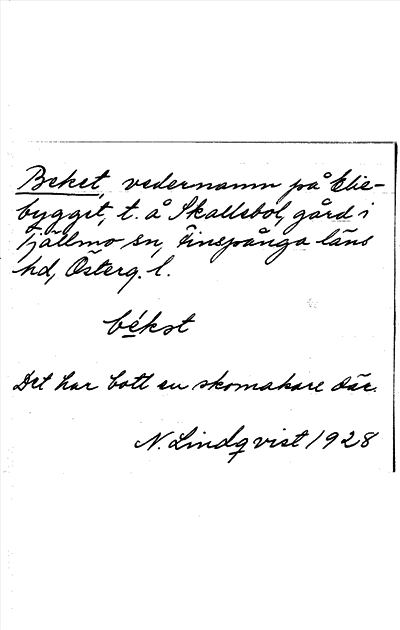 Beket, vedernamn på Elie-
bygget, t. å Skallebol, gård i
Tjällmo sn, Finspånga läns
hd, Österg. l.
békst
Det har bott en skomakare där.
N. Lindqvist 1928